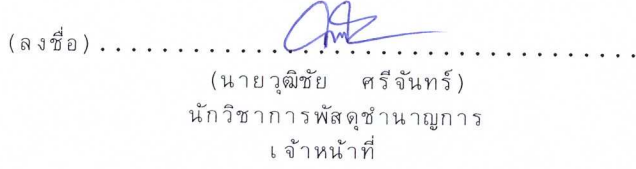 (ลงชื่อ)......................................
(นายวุฒิชัย ศรีจันทร์)
นักวิชาการพัสดุชำนาญการ
เจ้าหน้าที่